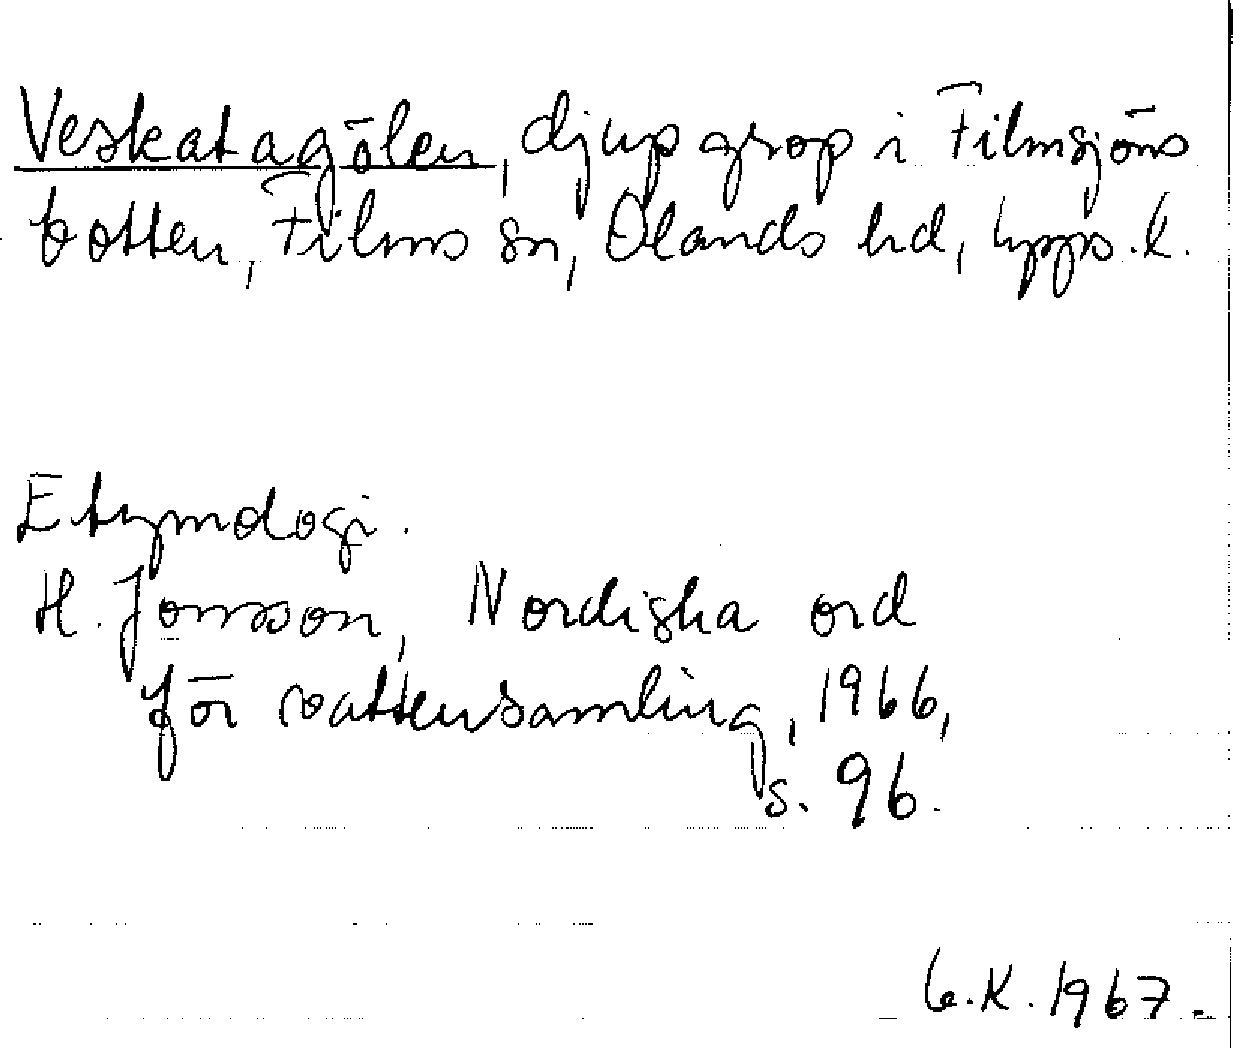 Veskatagölen, djup grop i Filmsjöns
botten, Films sn, Olands hd, Upps. l.
Etymologi.
H. Jonsson, Nordiska ord
för vattensamling, 1966,
s. 96.
G.K. 1967.